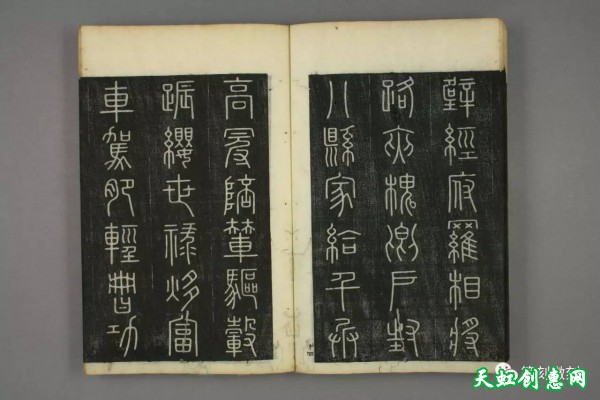 壁經府羅相將
路夾槐卿戶封
八縣家給千兵
高冠陪輦驅轂
振纓世祿侈富
車駕肥輕策功
天虹创惠网